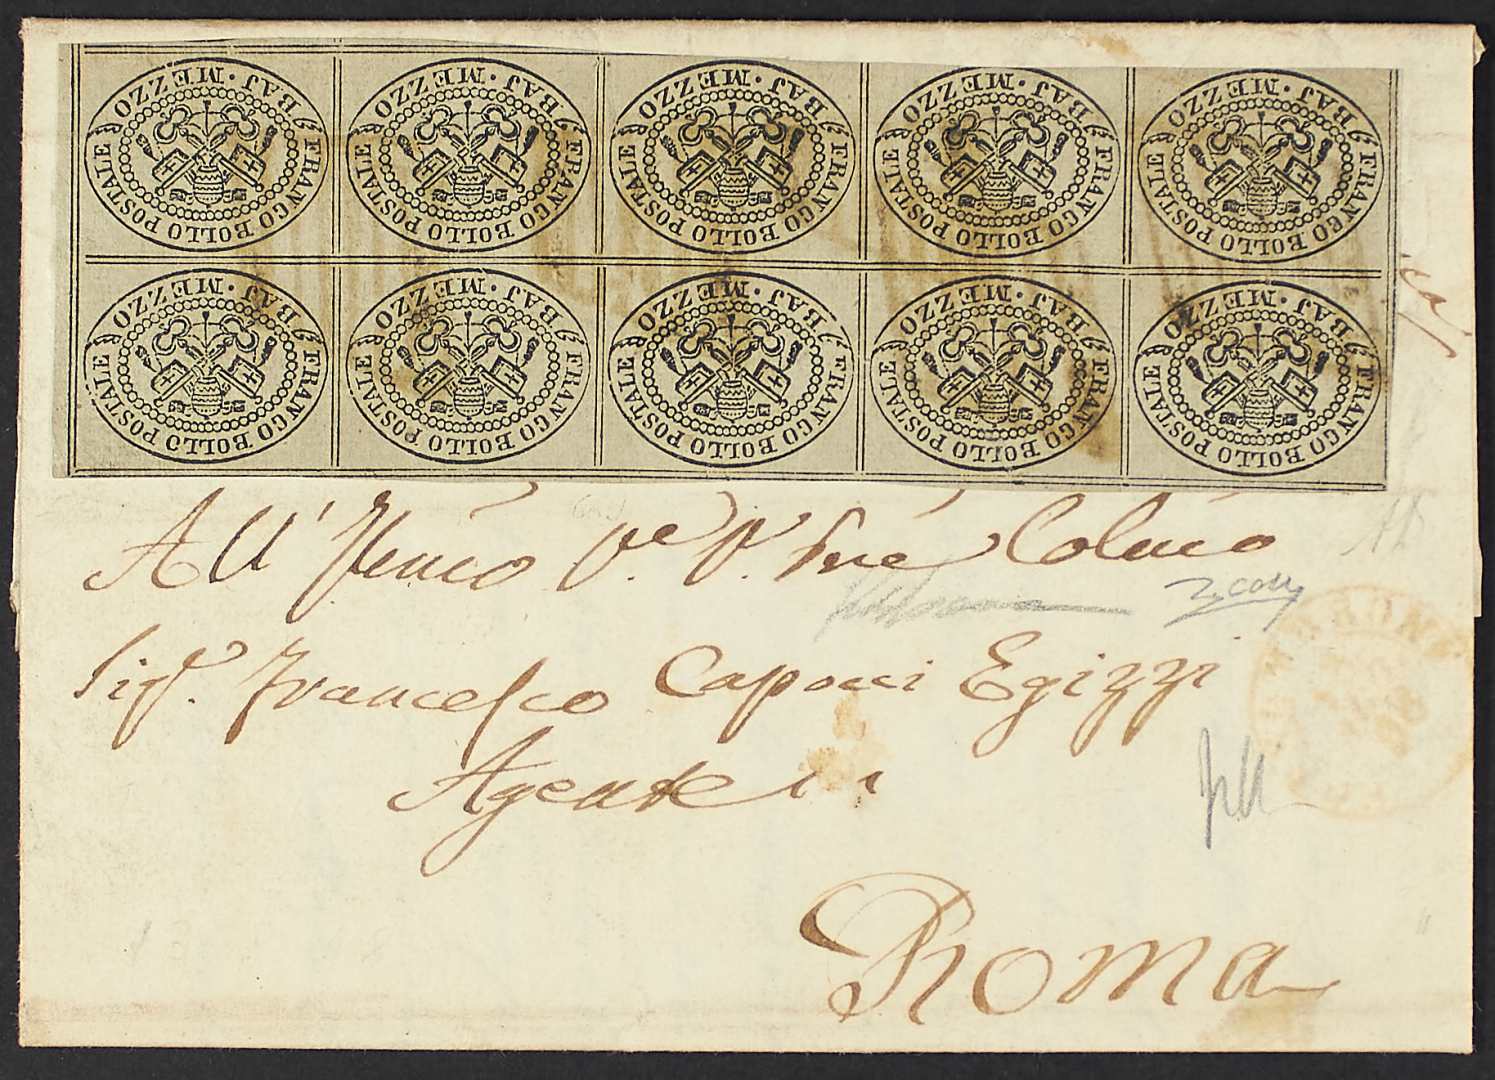 BAJ · MEZZO FRANCO BOLLO POSTALE
BAJ · MEZZO FRANCO BOLLO POSTALE
BAJ · MEZZO FRANCO BOLLO POSTALE
BAJ · MEZZO FRANCO BOLLO POSTALE
BAJ · MEZZO FRANCO BOLLO POSTALE
BAJ · MEZZO FRANCO BOLLO POSTALE
BAJ · MEZZO FRANCO BOLLO POSTALE
BAJ · MEZZO FRANCO BOLLO POSTALE
BAJ · MEZZO FRANCO BOLLO POSTALE
BAJ · MEZZO FRANCO BOLLO POSTALE
All'
Sig.r Francesco Caponi Egizzi
Agente in
Roma